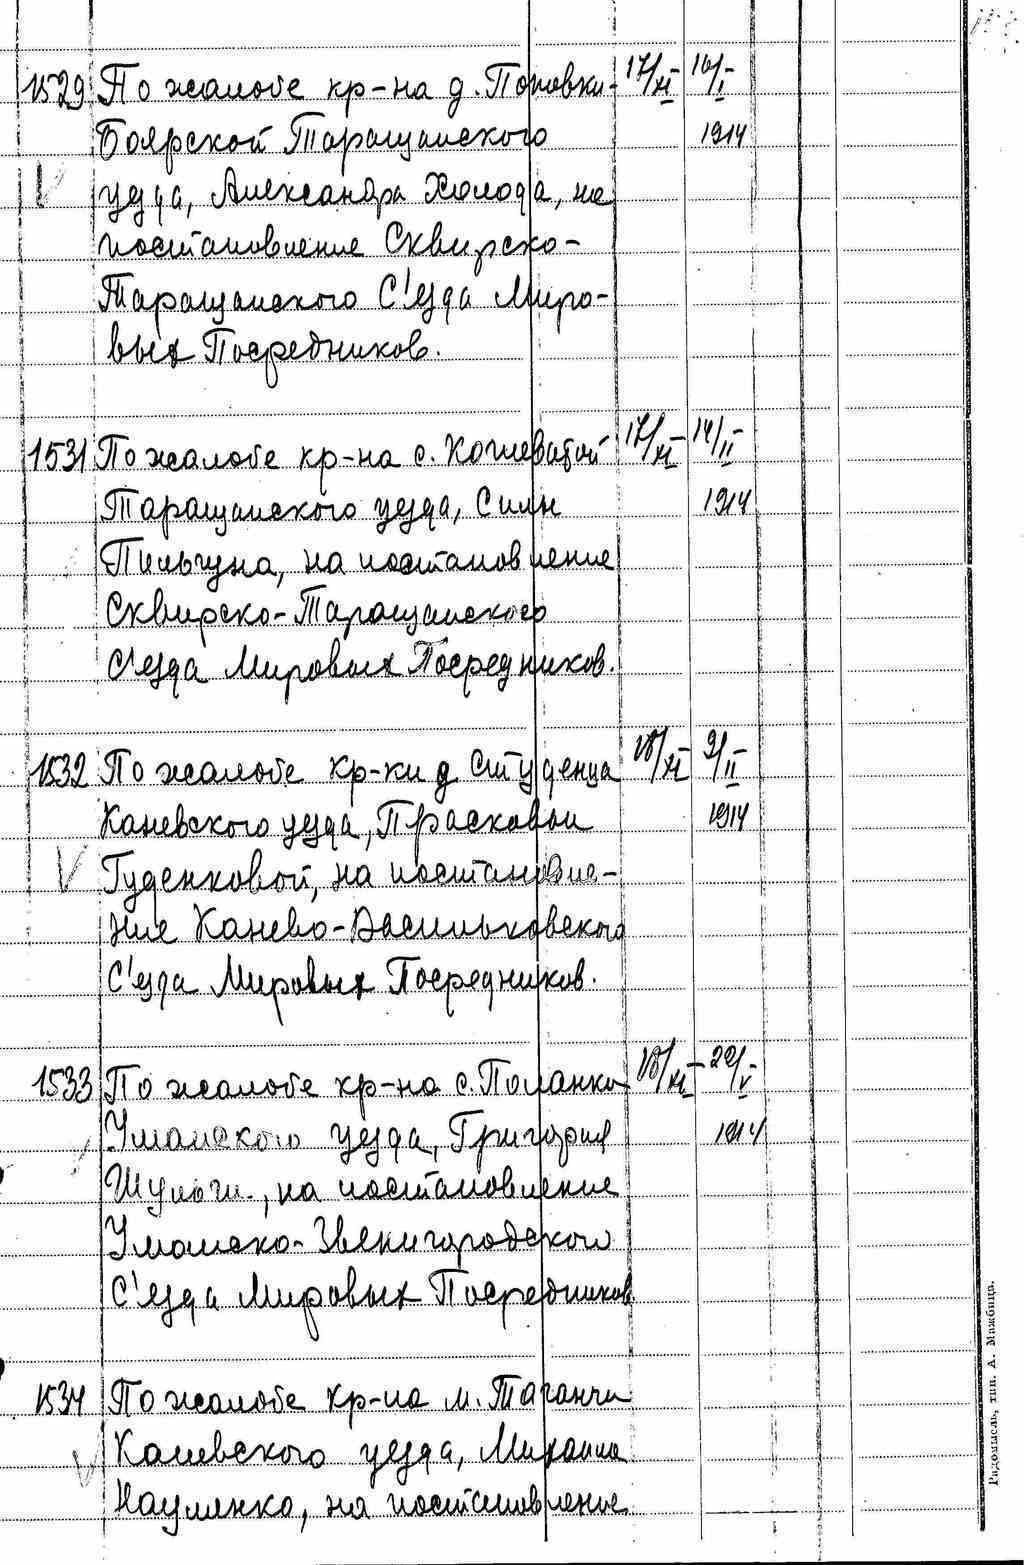 1529 По жалобе кр-на д. Поповки- 17/XI 16/I
Боярской Таращанского 1914
уезда, Александра Холода, на
постановление Сквирско-
Таращанского С'езда Миро-
вых Посредников.
1531 По жалобе кр-на с. Кошеватой 17/XI 14/II
Таращанского уезда, Силы 1914
Пильгуна, на постановление
Сквирско-Таращанского
С'езда Мировых Посредников.
1532 По жалобе кр-ки д. Студенца 18/XI 9/II
Каневского уезда, Прасковьи 1914
Гуденковой, на постановле-
ние Канево-Васильковского
С'езда Мировых Посредников.
1533 По жалобе кр-на с. Поланки 18/XI 22/V
Уманского уезда, Григория 1914
Шульги, на постановление
Уманско-Звенигородского
С'езда Мировых Посредников
1534 По жалобе кр-на м. Таганчи
Каневского уезда, Михаила
Науменко, на постановление
Радомысль, тип. А. Мажбица.